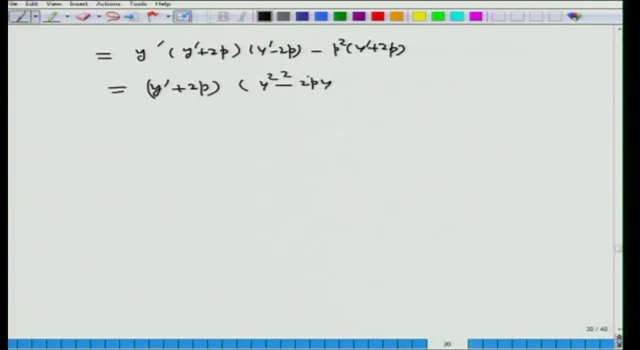 File Edit View Insert Actions Tools Help
= y' (y'+2p) (y'-2p) - p²(y'+2p)
= (y'+2p) ( y'² - 2py
30 / 40
30